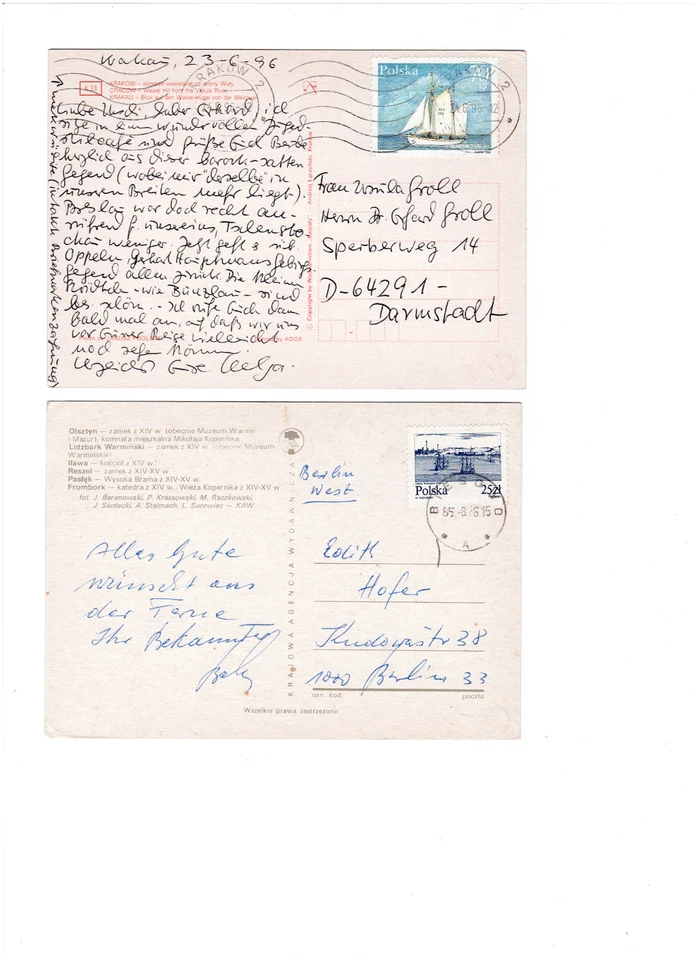 Krakau, 23-6-96
KRAKÓW
CRACOW – Wawel Hill from the Vistula River
KRAKAU – Blick auf den Wawel-Hügel von der Weichsel
Liebe Uschi, lieber Erhard, ich
sitze in einem wundervollen Jugend-
stilcafé und grüße Euch Beide
herzlich aus dieser barock-satten
Gegend (wobei mir "derselbe" in
unseren Breiten mehr liegt).
Breslau war doch recht an-
rührend f. unsereins, Tschensto
chau weniger. Jetzt geht's üb.
Oppeln, Gerhart Hauptmanns Gebirgs-
gegend allen zurück. Die kleinen
Städtchen - wie Bunzlau - sind
bes. schön. - Ich rufe Euch dann
bald mal an, auf daß wir uns
vor Eurer Reise vielleicht
noch sehen können.
Herzlichst Eure Helga.
Polska
KRAKÓW 2
Frau Ursula Groll
Herrn Dr Erhard Groll
Sperberweg 14
D-64291-
Darmstadt
Olsztyn — zamek z XIV w. (obecnie Muzeum Warmii
i Mazur), komnata mieszkalna Mikołaja Kopernika
Lidzbark Warmiński — zamek z XIV w. (obecnie Muzeum
Warmińskie)
Iława — kościół z XIV w.
Reszel — zamek z XIV-XV w.
Pasłęk — Wysoka Brama z XIV-XV w.
Frombork — katedra z XIV w., Wieża Kopernika z XIV-XV w.
fot. J. Baranowski, P. Krassowski, M. Raczkowski,
J. Siudecki, A. Stelmach, L. Surowiec — KAW
KRAJOWA AGENCJA WYDAWNICZA
Alles Gute
wünscht aus
der Ferne
Ihr Bekannter
Berlin
West
Polska 25zł
85.-8.-6.15
A
Edith
Hofer
Kudowastr 38
1000 Berlin 33
ozn. kod.
poczta
Wszelkie prawa zastrzeżone